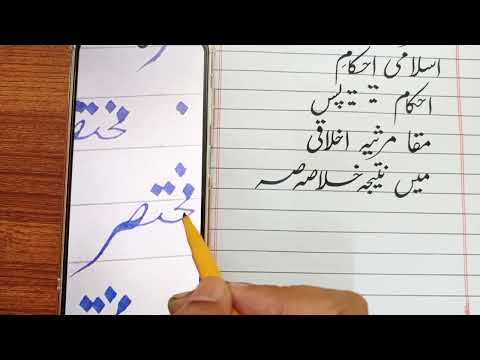 اسلامی احکام
احکام پس
مقا مرثیہ اخلاقی
میں نتیجہ خلاصہ صہ
مختصر
مختصر